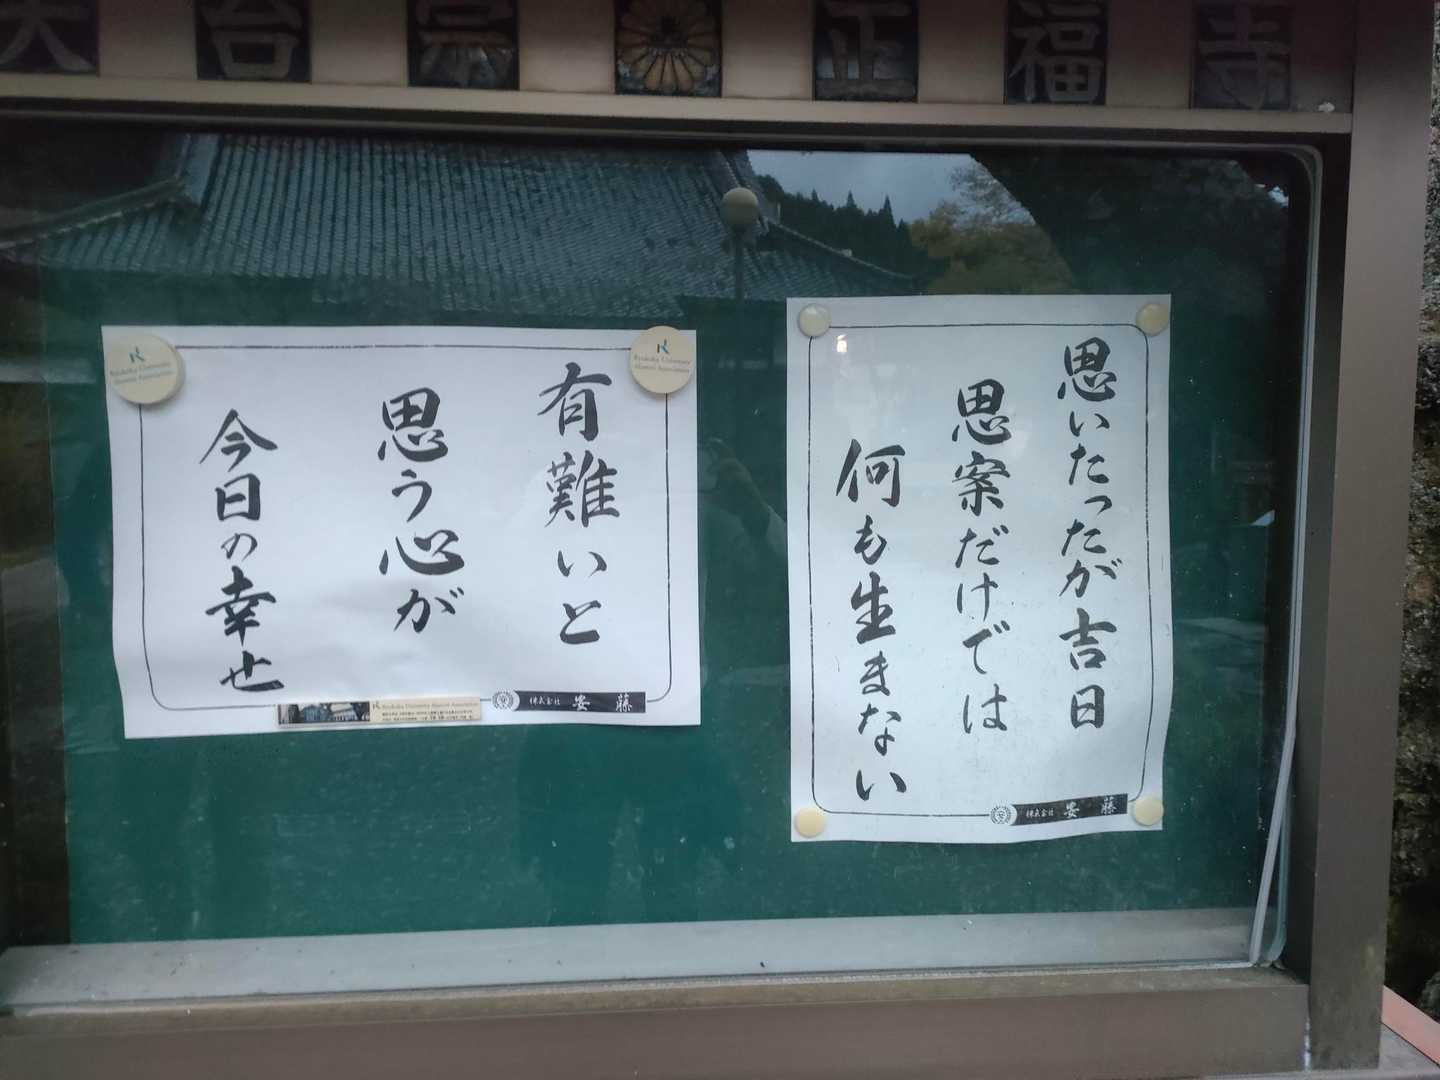 天台宗 正福寺
思いたったが吉日
思案だけでは
何も生まない
株式会社 安藤
有難いと
思う心が
今日の幸せ
株式会社 安藤
Ryukoku University
Alumni Association
Ryukoku University
Alumni Association
Ryukoku University Alumni Association